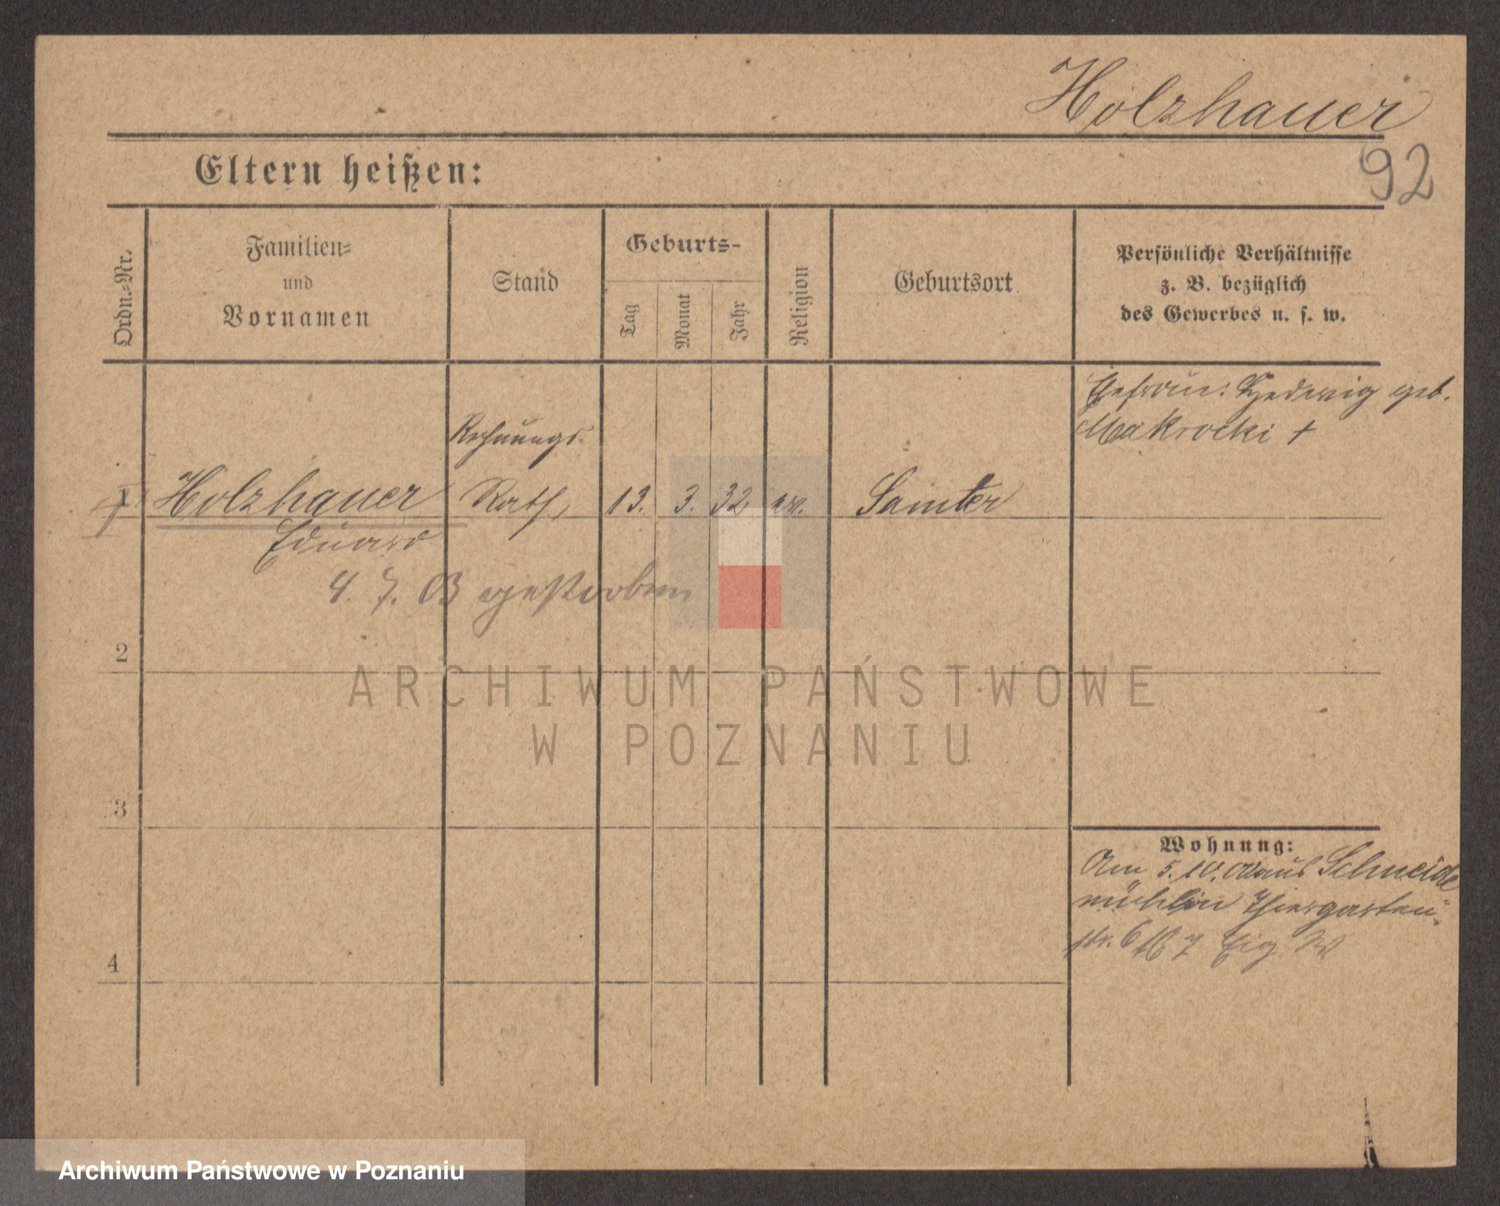 Holzhauer
92
Eltern heißen:
Ordn.-Nr.
Familien-
und
Vornamen
Stand
Geburts-
Tag
Monat
Jahr
Religion
Geburtsort
Persönliche Verhältnisse
z. B. bezüglich
des Gewerbes u. s. w.
Ehefrau: Hedwig geb.
Makrocki †
Rechnungs-
1 Holzhauer Rath, 13. 3. 32 ev. Samter
Eduard
4. 7. 03 gestorben
2
3
4
Wohnung:
Am 5. 10. aus Schneide
mühl in Thiergarten-
str. 6
ARCHIWUM PAŃSTWOWE
W POZNANIU
Archiwum Państwowe w Poznaniu